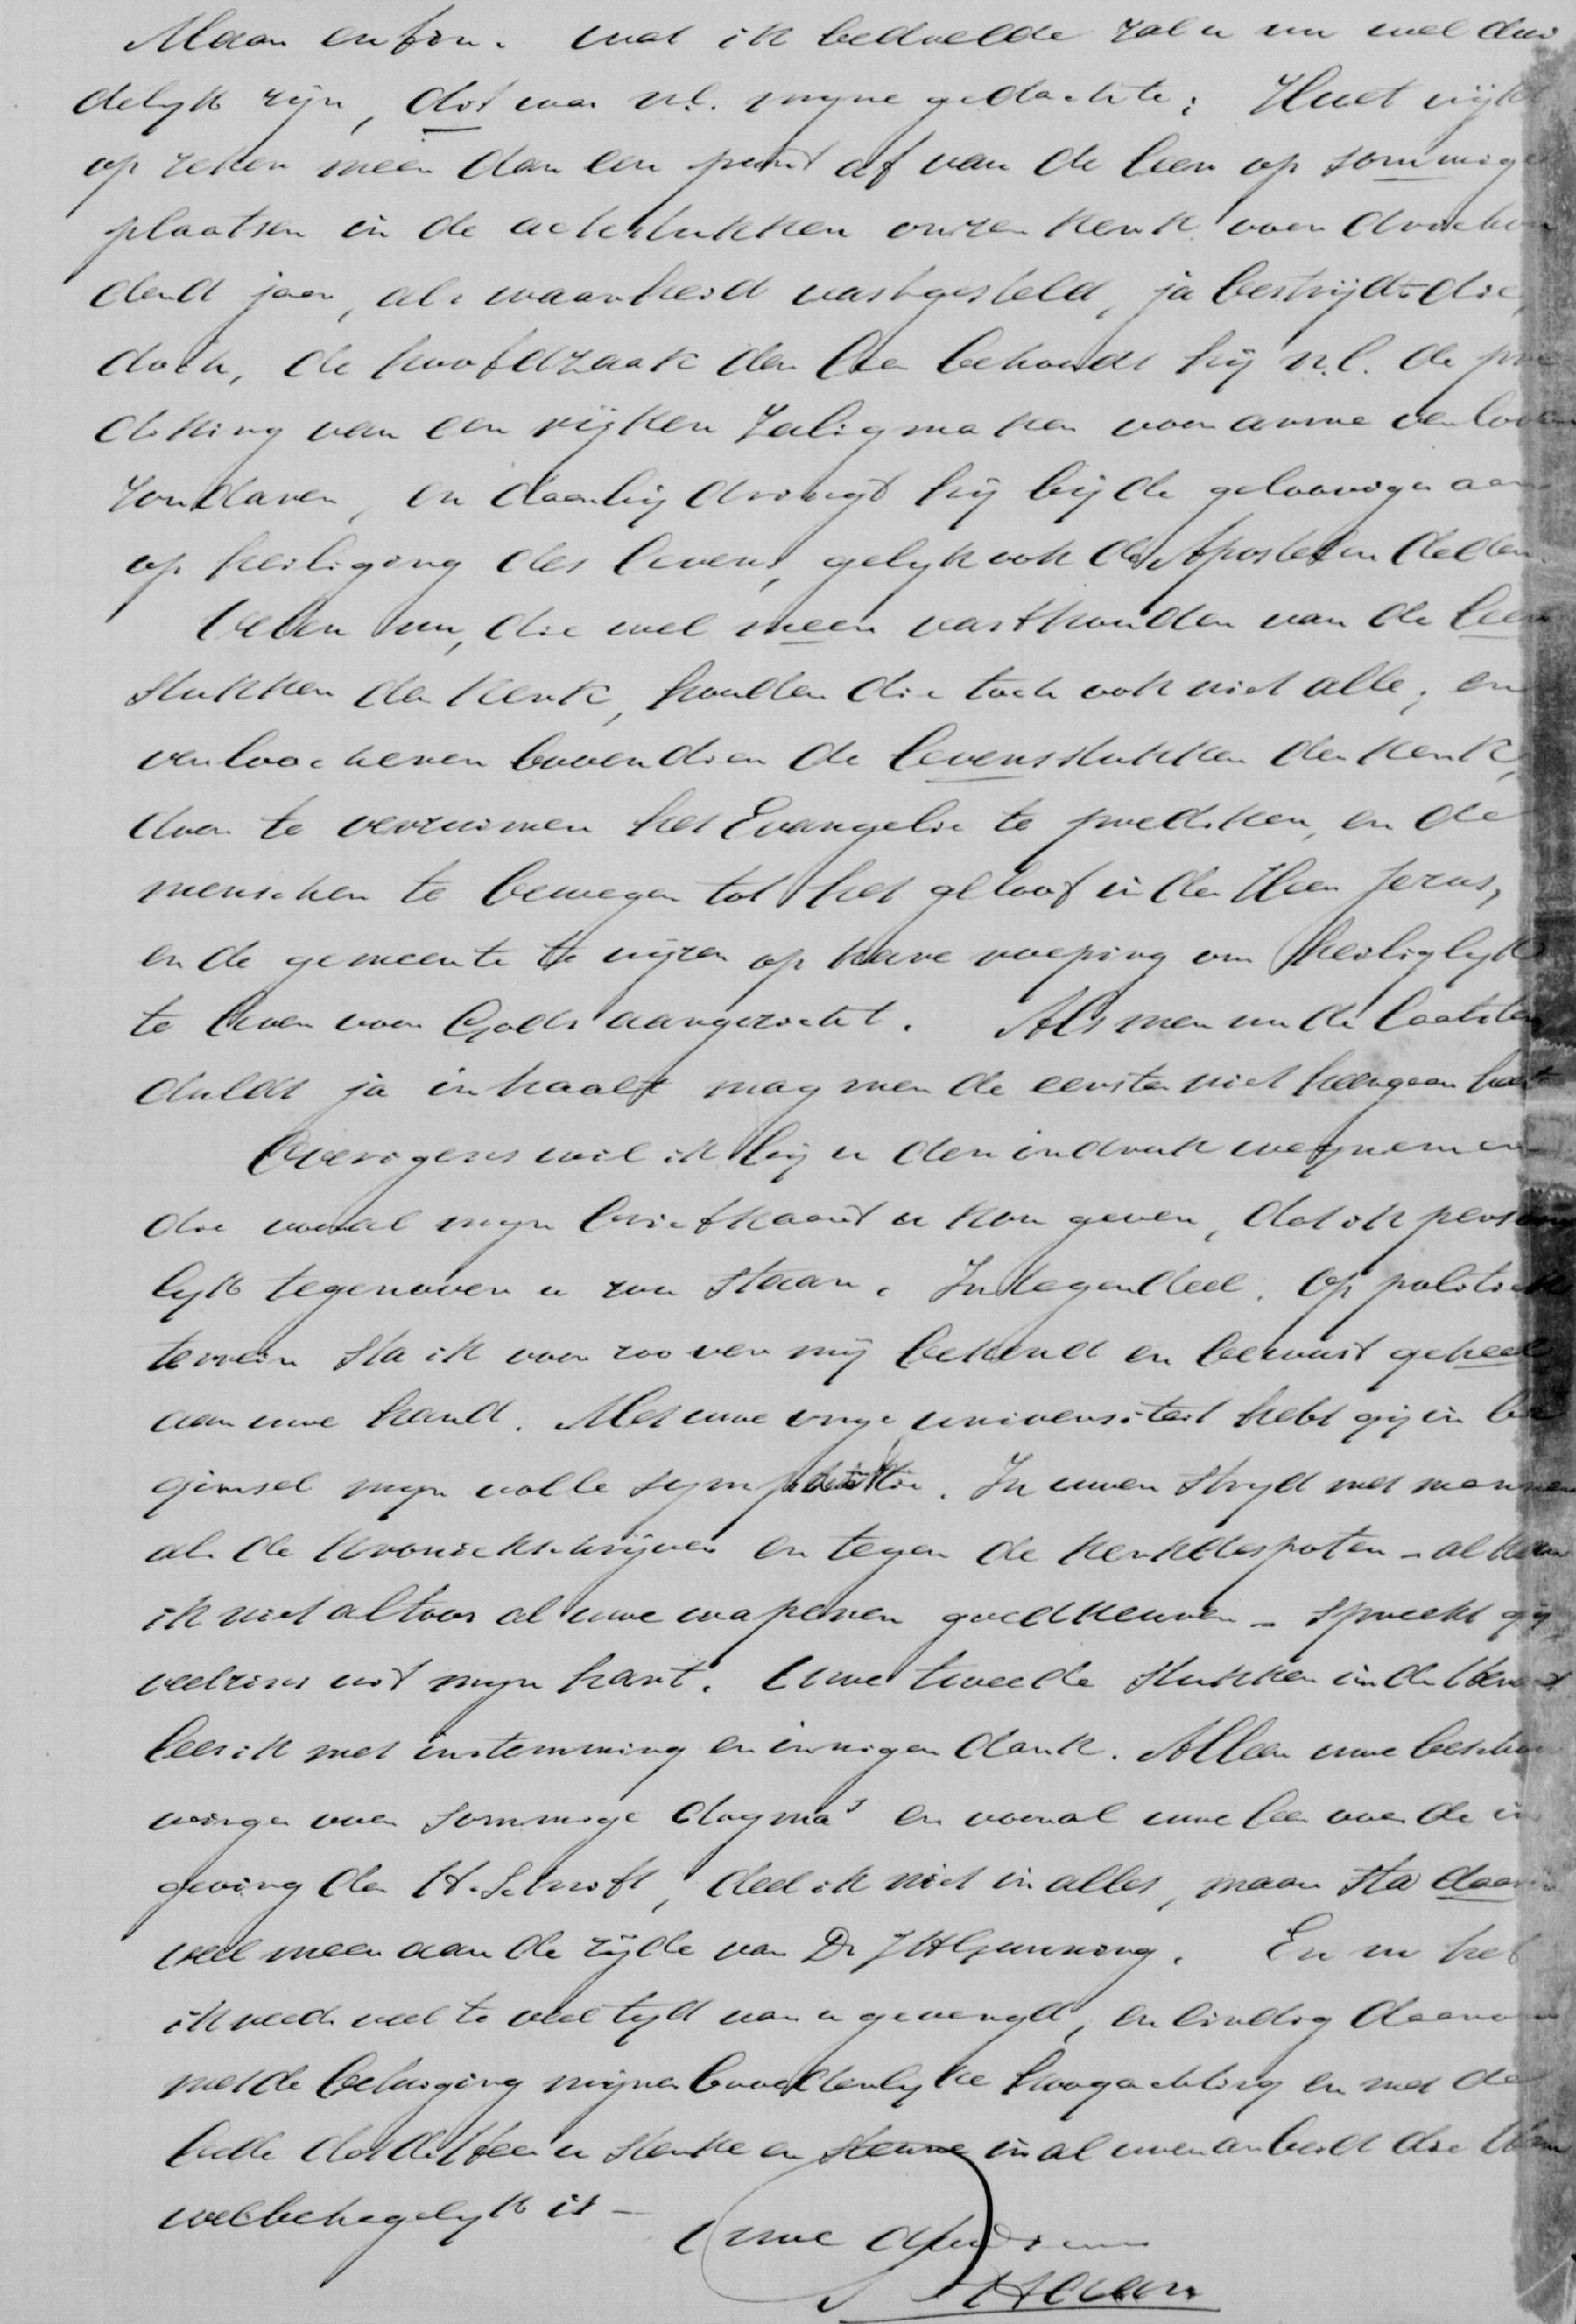 Maar enfin. wat ik bedoelde zal u nu wel dui
delijk zijn, dit was nl. myne gedachte: Huet wijkt
op zeker meer dan een punt af van de leer op sommige
plaatsen in de acte stukken onzer kerk voor driehon
derd jaar, als waarheid vastgesteld, ja bestrijdt die,
doch, de hoofdzaak der leer behoudt hij n.l. de pre
diking van een rijken Zaligmaker voor arme verloren
zondaren, en daarbij dringt hij bij de geloovigen aan
op heiliging des levens, gelyk ook de Apostelen deden.
Velen nu, die wel meer vasthouden van de leer
stukken der kerk, houden die toch ook niet alle; en
verloochenen bovendien de levensstukken der kerk,
door te verzuimen het Evangelie te prediken, en de
menschen te bewegen tot het geloof in den Heer Jezus,
en de gemeente te wijzen op hare roeping om heiliglyk
te leven voor Gods aangezicht. Als men nu de laatsten
duldt ja inhaalt mag men de eersten niet heengaan
Overigens wil ik bij u den indruk wegnemen
die vooral myn briefkaart u kon geven, dat ik persoon
lyk tegenover u zou staan. Integendeel. Op politiek
terrein sta ik voor zoo ver mij bekend en bewust geheel
aan uwe hand. Met uwe vrije universiteit hebt gij in be
ginsel myn volle sympathie. In uwen stryd met mannen
als de kroniekschrijver en tegen de kerkdespoten - al kan
ik niet altoos al uwe wapenen goedkeuren - spreekt gij
veelzins uit myn hart. Uwe tweede stukken in de Heraut
lees ik met instemming en innigen dank. Alleen uwe beschou
wingen over sommige dogma's en vooral uwe leer over de in
geving der H. Schrift, deel ik niet in alles, maar sta daarin
veel meer aan de zijde van Dr J H Gunning. En nu heb
ik reeds veel te veel tyd van u gevergd, en eindig daarom
met de betuiging mijner broederlyke hoogachting en met de
bede dat de Heer u sterke en steune in al uwen arbeid die Hem
welbehagelyk is -
Uwe